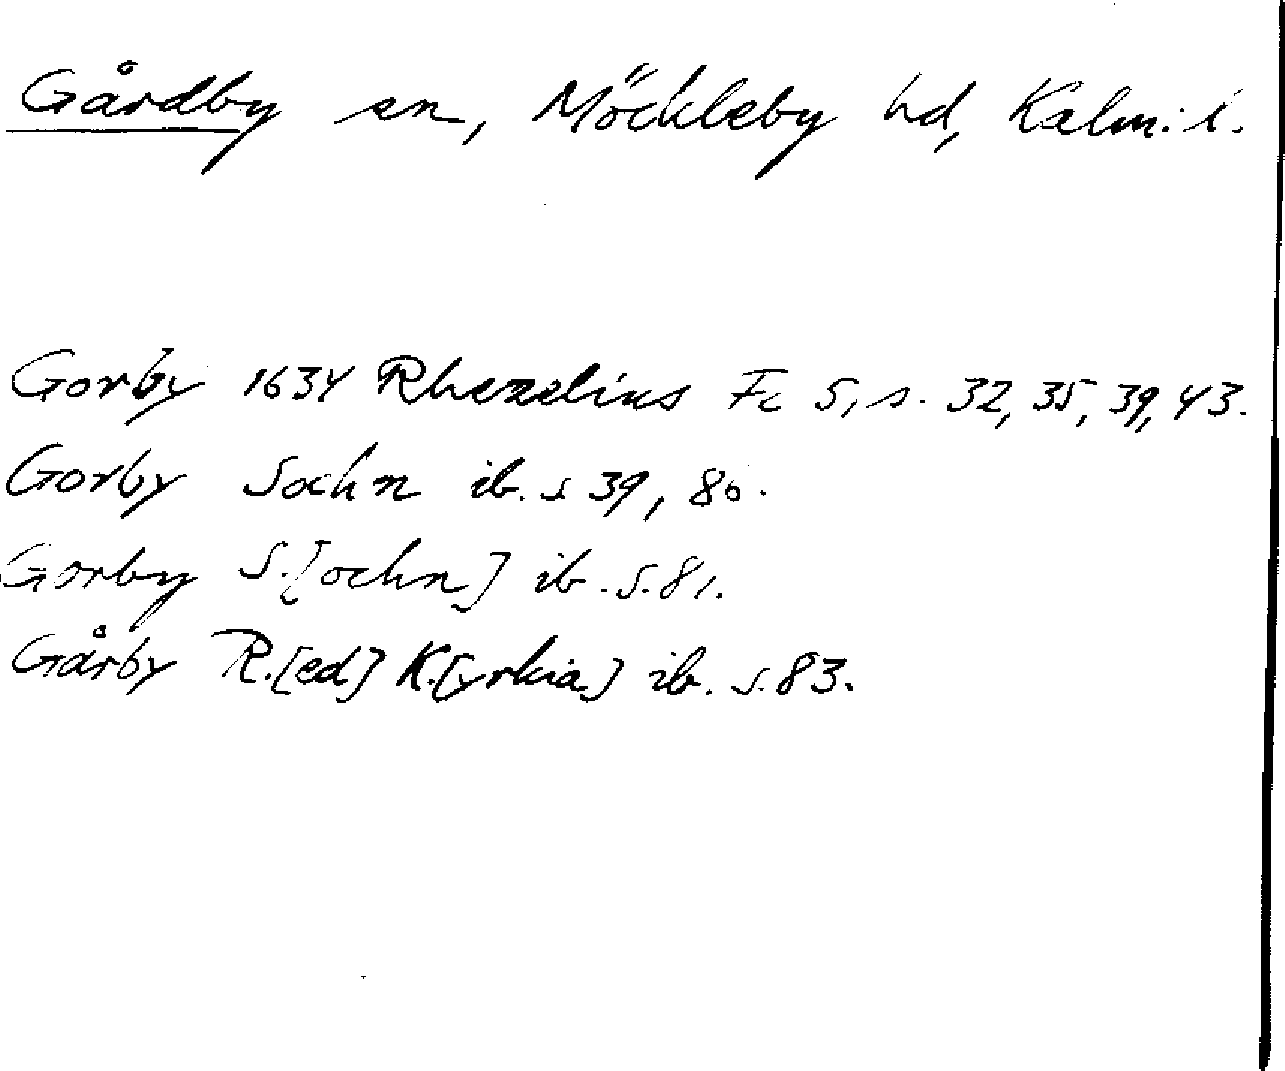 Gårdby sn, Möckleby hd, Kalm. l.
Gorby 1634 Rhezelius Fc 5, s. 32, 35, 39, 43.
Gorby Sochn ib. s 39, 80.
Gorby S.[ochn] ib. s. 81.
Gårby R.[ed] K.[yrkia] ib. s. 83.